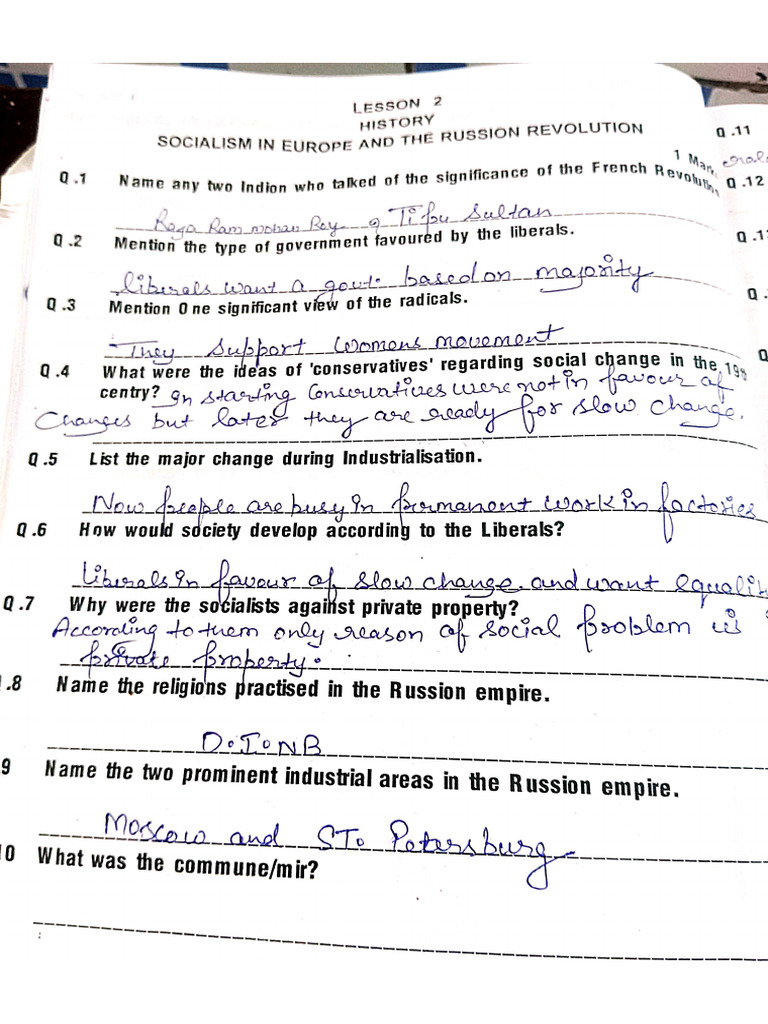 LESSON 2
HISTORY
SOCIALISM IN EUROPE AND THE RUSSION REVOLUTION
1 Mark
Q.1 Name any two Indion who talked of the significance of the French Revolution
Raga Ram mohan Roy & Tipu Sultan
Q.2 Mention the type of government favoured by the liberals.
liberals want a govt. based on majority
Q.3 Mention One significant view of the radicals.
They support womens movement
Q.4 What were the ideas of 'conservatives' regarding social change in the 19th
centry? In starting Conservatives were not in favour of
Changes but later they are ready for slow change.
Q.5 List the major change during Industrialisation.
Now people are busy in permanent work in factories
Q.6 How would society develop according to the Liberals?
Liberals in favour of slow change and want equalit
Q.7 Why were the socialists against private property?
According to them only reason of social problem is
private property.
.8 Name the religions practised in the Russion empire.
D.I.N B
9 Name the two prominent industrial areas in the Russion empire.
Moscow and ST. Petersburg
10 What was the commune/mir?
Q.11
Q.12
Q.1
Q.
Q